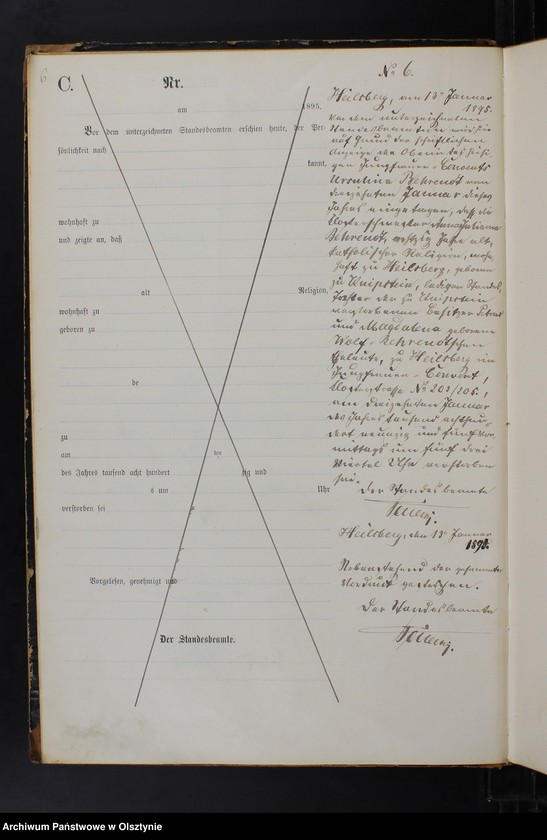 6
C.
Nr.
am
1895.
Vor dem unterzeichneten Standesbeamten erschien heute, der Per-
sönlichkeit nach
kannt,
wohnhaft zu
und zeigte an, daß
alt
Religion,
wohnhaft zu
geboren zu
de
zu
am
ten
des Jahres tausend acht hundert zig und
s um Uhr
verstorben sei
Vorgelesen, genehmigt und
Der Standesbeamte.
No 6.
Heilsberg, am 13ten Januar
1895.
Vor dem unterzeichneten
Standesbeamten wird hier
auf Grund der schriftlichen
Anzeige der Oberin des hiesi-
gen Jungfrauen-Convents
Ursulina Behrendt vom
dreizehnten Januar dieses
Jahres eingetragen, daß die
Klosterschwester Anna Juliana
Behrendt, achtzig Jahre alt,
katholischer Religion, wohn-
haft zu Heilsberg, geboren
zu Knipstein, ledigen Standes,
Tochter der zu Knipstein
verstorbenen Besitzer Peter
und Magdalena geborene
Wolf-Behrendtschen
Eheleute, zu Heilsberg im
Jungfrauen-Convent,
Klosterstraße No 202/205,
am dreizehnten Januar
des Jahres tausend achthun-
dert neunzig und fünf Vor-
mittags um fünf drei
Viertel Uhr verstorben
sei.
Der Standesbeamte
Heilsberg, den 13ten Januar
1895.
Nebenstehend der gesammte
Vordruck gestrichen.
Der Standesbeamte
Archiwum Państwowe w Olsztynie